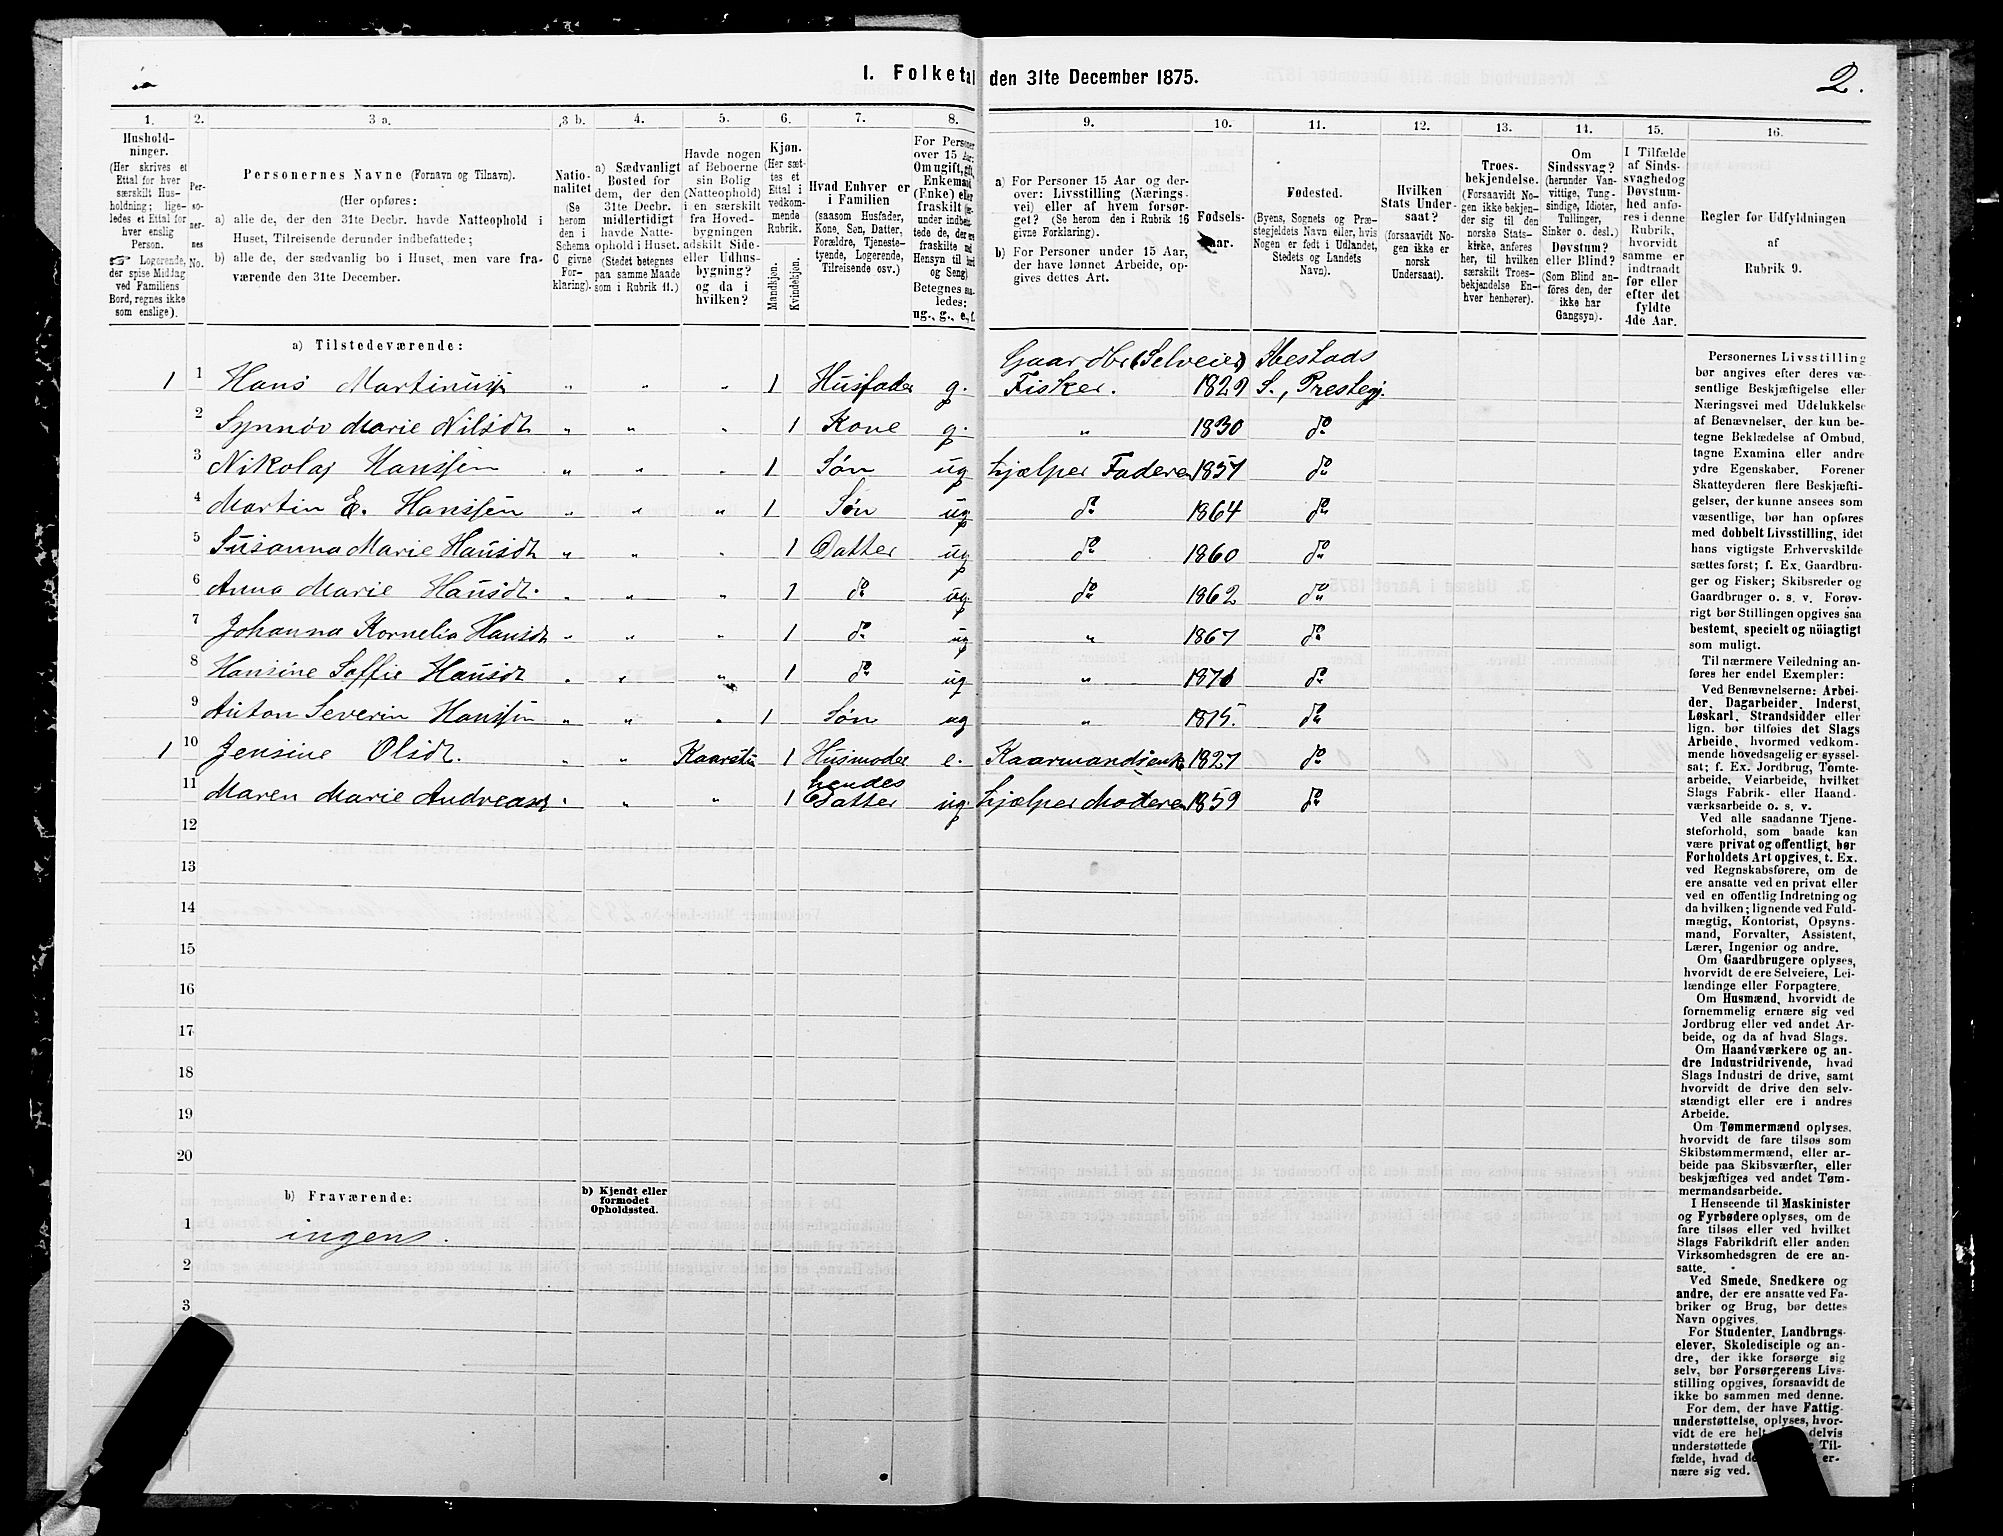 1. Folketal den 31te December 1875.
2.
1. 2. 3 a. 3 b. 4. 5. 6. 7. 8. 9. 10. 11. 12. 13. 14. 15. 16.
Hushold-
ninger.
(Her skrives et
Ettal for hver
særskilt Hus-
holdning; lige-
ledes et Ettal for
hver enslig
Person.
☞ Logerende,
der spise Middag
ved Familiens
Bord, regnes ikke
som enslige).
Per-
so-
ner-
nes
No.
Personernes Navne (Fornavn og Tilnavn).
(Her opføres:
a) alle de, der den 31te Decbr. havde Natteophold i
Huset, Tilreisende derunder indbefattede;
b) alle de, der sædvanlig bo i Huset, men vare fra-
værende den 31te December.
Natio-
nalitet
(Se
herom
den i
Schema
C givne
For-
klaring).
a) Sædvanligt
Bosted for
dem, der den
31te Decbr.
midlertidigt
havde Natte-
ophold i Huset.
(Stedet betegnes
paa samme Maade
som i Rubrik 11.)
Havde nogen
af Beboerne
sin Bolig
(Natteophold)
i en særskilt
fra Hoved-
bygningen
adskilt Side-
eller Udhus-
bygning?
og da i
hvilken?
Kjøn.
(Her sæt-
tes et
Ettal i
vedkom-
mende
Rubrik.
Mandkjøn.
Kvindekjøn.
Hvad Enhver er
i Familien
(saasom Husfader,
Kone, Søn, Datter,
Forældre, Tjeneste-
tyende, Logerende,
Tilreisende osv.)
For Personer
over 15 Aar:
Om ugift, gift,
Enkemand
(Enke) eller
fraskilt
Betegnes saa-
ledes:
ug., g., e., f.
a) For Personer 15 Aar og der-
over: Livsstilling (Nærings-
vei) eller af hvem forsør-
get? (Se herom den i Rubrik 16
givne Forklaring).
b) For Personer under 15 Aar,
der have lønnet Arbeide, op-
gives dettes Art.
Fødsels-
aar.
Fødested.
(Byens, Sognets og Præ-
stegjeldets Navn eller, hvis
Nogen er født i Udlandet,
Stedets og Landets
Navn).
Hvilken
Stats Under-
saat?
(forsaavidt No-
gen ikke er
norsk
Undersaat).
Troes-
bekjendelse.
(Forsaavidt No-
gen ikke bekjen-
der sig til den
norske Stats-
kirke, anføres
her, til hvilken
særskilt Troes-
bekjendelse En-
hver henhører).
Om
Sindssvag?
(herunder Van-
vittige, Tung-
sindige, Idioter,
Tullinger,
Sinker o. desl.)
Døvstum?
eller Blind?
(Som Blind an-
føres den, der
ikke har
Gangsyn).
I Tilfælde
af Sinds-
svaghed og
Døvstum-
hed anfø-
res i denne
Rubrik,
hvorvidt
samme er
indtraadt
før eller
efter det
fyldte
4de Aar.
Regler for Udfyldningen
af
Rubrik 9.
a) Tilstedeværende:
Gaardbr (Selveier) Ibestads
1 1 Hans Martinuss " " " 1 Husfader g. Fisker. 1829 S., Prestegj.
2 Synnøv Marie Nilsdt " " " 1 Kone g. " 1830 do
3 Nikolaj Hanssen " " " 1 Søn ug hjælper Faderen 1857 do
4 Martin E. Hanssen " " " 1 Søn ug do 1864 do
5 Susanna Marie Hansdt " " " 1 Datter ug do 1860 do
6 Anna Marie Hansdt. " " " 1 do ug. do 1862 do
7 Johanna Kornelia Hansdt " " " 1 do ug " 1867 do
8 Hansine Soffie Hansdt " " " 1 do ug " 1871 do
9 Anton Severin Hanssen " " " 1 Søn ug " 1875. do
1 10 Jensine Olsdt. " " Kaarstu 1 Husmoder e. Kaarmandsenke 1827 do
hendes
11 Maren Marie Andreasd " " " 1 Datter ug. hjælper Moderen 1859 do
12
13
14
15
16
17
18
19
20
b) Fraværende:
b) Kjendt eller
formodet
Opholdssted.
1 ingen.
2
3
Personernes Livsstilling
bør angives efter deres væ-
sentlige Beskjæftigelse eller
Næringsvei med Udelukkelse
af Benævnelser, der kun be-
tegne Beklædelse af Ombud,
tagne Examina eller andre
ydre Egenskaber. Forener
Skatteyderen flere Beskjæfti-
gelser, der kunne ansees som
væsentlige, bør han opføres
med dobbelt Livsstilling, idet
hans vigtigste Erhvervskilde
sættes først; f. Ex. Gaardbru-
ger og Fisker; Skibsreder og
Gaardbruger o. s. v. Forøv-
rigt bør Stillingen opgives saa
bestemt, specielt og nöiagtigt
som muligt.
Til nærmere Veiledning an-
føres her endel Exempler:
Ved Benævnelserne: Arbei-
der, Dagarbeider, Inderst,
Løskarl, Strandsidder eller
lign. bør tilføies det Slags
Arbeide, hvormed vedkom-
mende hovedsagelig er syssel-
sat; f. Ex. Jordbrug, Tømte-
arbeide, Veiarbeide, hvilket
Slags Fabrik- eller Haand-
værksarbeide o. s. v.
Ved alle saadanne Tjene-
steforhold, som baade kan
være privat og offentligt, bør
Forholdets Art opgives, t. Ex.
ved Regnskabsførere, om de
ere ansatte ved en privat eller
ved en offentlig Indretning og
da hvilken; lignende ved Fuld-
mægtig, Kontorist, Opsyns-
mand, Forvalter, Assistent,
Lærer, Ingeniør og andre.
Om Gaardbrugere oplyses,
hvorvidt de ere Selveiere, Lei-
lændinge eller Forpagtere.
Om Husmænd, hvorvidt de
fornemmelig ernære sig ved
Jordbrug eller ved andet Ar-
beide, og da af hvad Slags.
Om Haandværkere og an-
dre Industridrivende, hvad
Slags Industri de drive, samt
hvorvidt de drive den selv-
stændigt eller ere i andres
Arbeide.
Om Tømmermænd oplyses,
hvorvidt de fare tilsøs som
Skibstømmermænd, eller ar-
beide paa Skibsværfter, eller
beskjæftiges ved andet Tøm-
mermandsarbeide.
I Henseende til Maskinister
og Fyrbødere oplyses, om de
fare tilsøs eller ved hvilket
Slags Fabrikdrift eller anden
Virksomhedsgren de ere an-
satte.
Ved Smede, Snedkere og
andre, der ere ansatte ved Fa-
briker og Brug, bør dettes
Navn opgives.
For Studenter, Landbrugs-
elever, Skoledisciple og an-
dre, der ikke forsørge sig
selv, bør Forsørgerens Livs-
stilling opgives, forsaavidt de
ikke bo sammen med denne.
For dem, der have Fattig-
understøttelse, oplyses, hvor-
vidt de ere helt delvis
understøttede Til-
fælde, hvad de er-
nære sig ved.